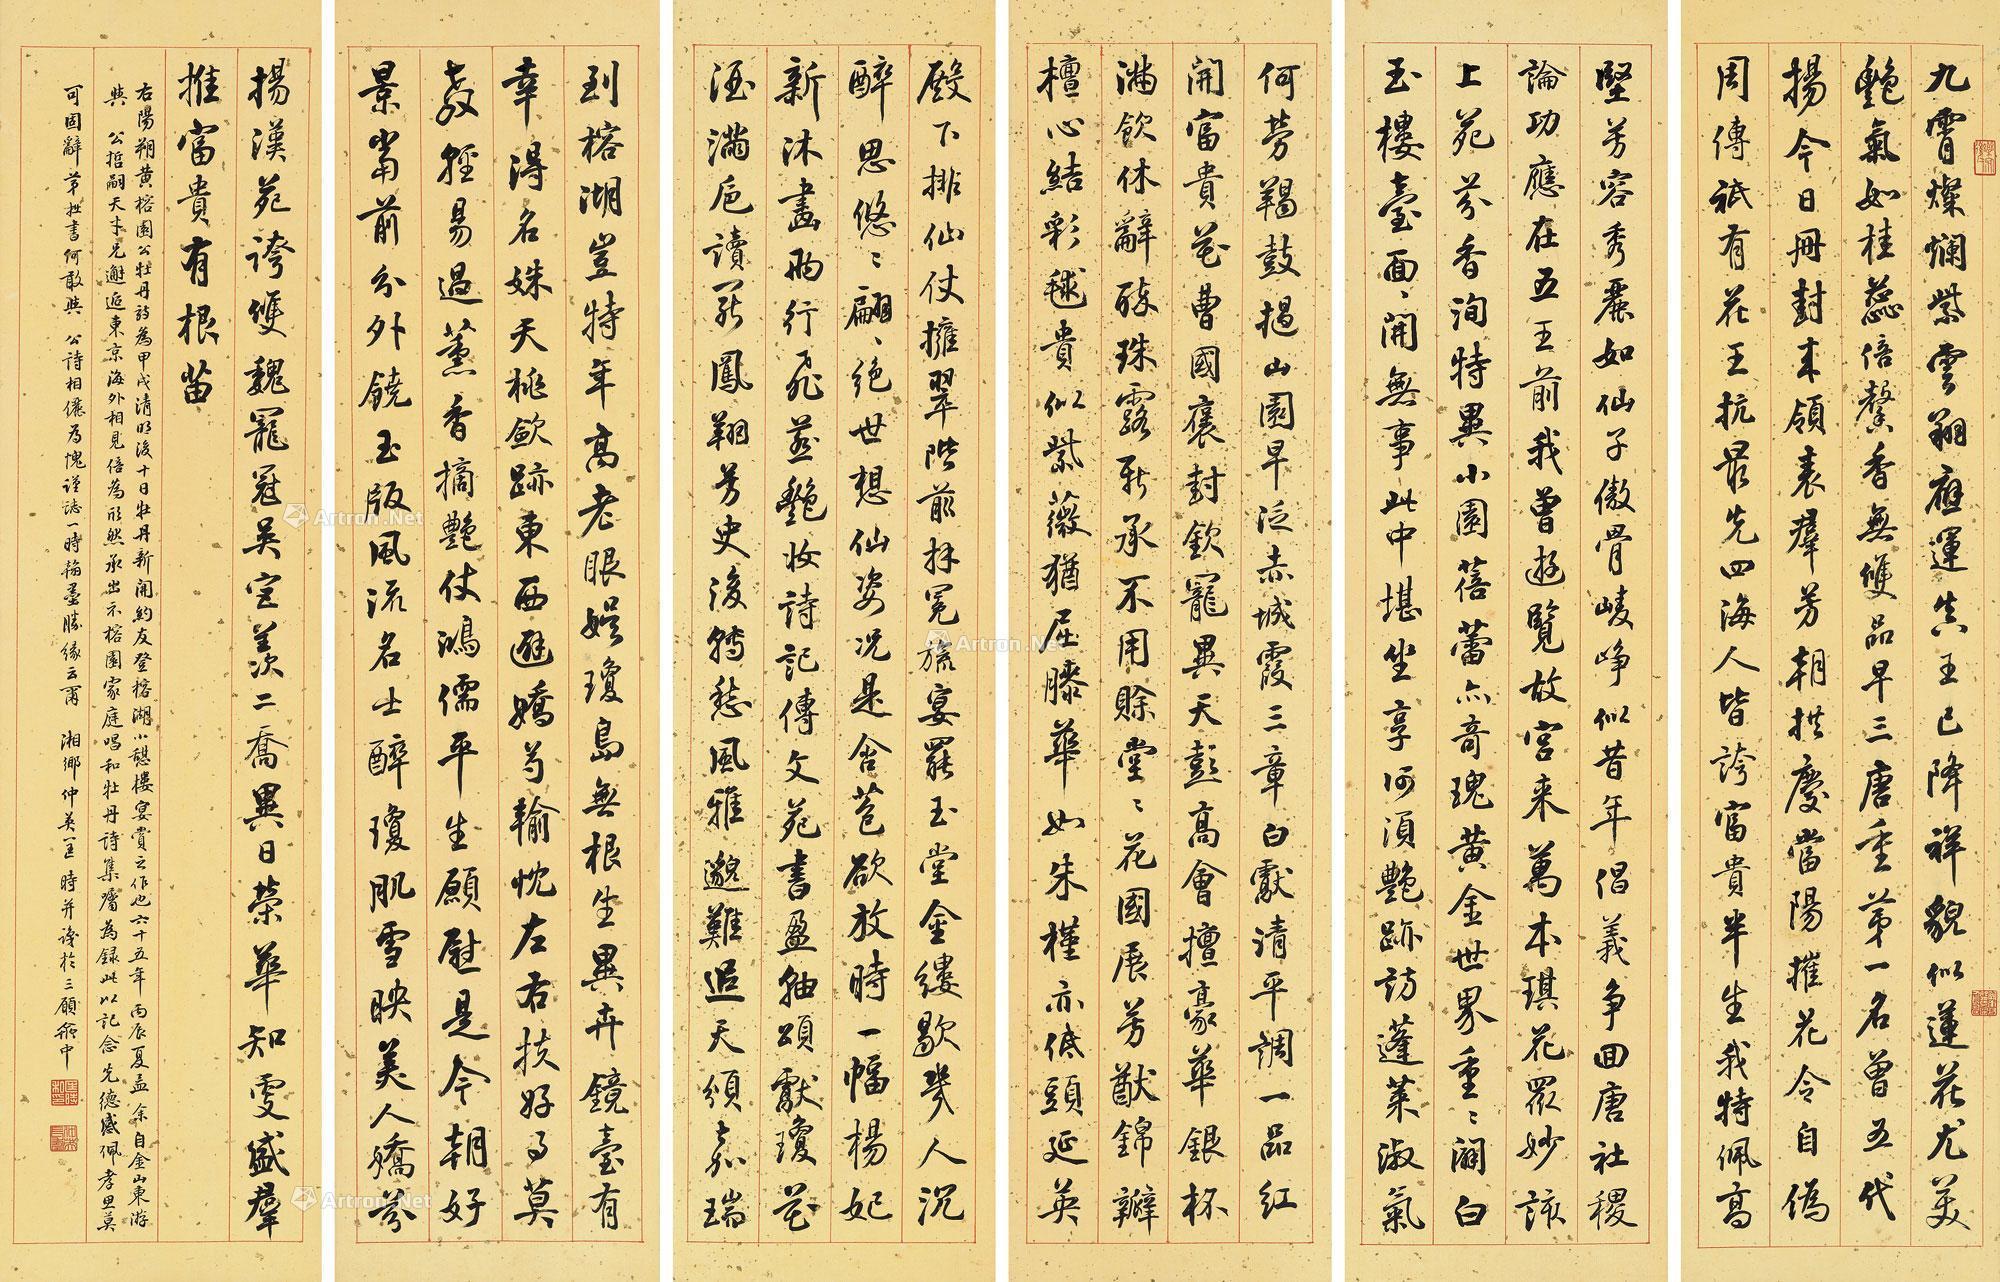 九霄燦爛紫雲翔應運真王已降祥貌似蓮花尤美
艷氣如桂蕊倍馨香無雙品早三唐重第一名曾五代
揚今日冊封來領袁群芳朝拱慶當陽摧花令自偽
周傳祇有花王抗最先四海人皆誇富貴半生我特佩高
堅芳容秀麗如仙子傲骨崚崢似昔年倡義爭回唐社稷
論功應在五王前我曾遊覽故宮來萬本琪花眾妙該
上苑芬香洵特異小園蓓蕾亦奇瑰黃金世界重重闢白
玉樓臺面面開無事此中堪坐享何須艷跡訪蓬萊淑氣
何勞羯鼓撾山園早泛赤城霞三章白獻清平調一品紅
開富貴花曹國褒封欽寵異天彭高會擅豪華銀杯
滿飲休辭醉珠露新承不用賒堂堂花國展芳猷錦瓣
檀心結彩毬貴似紫薇猶屈膝華如朱槿亦低頭延英
殿下排仙仗擁翠階前拜冕旒宴罷玉堂金縷歇幾人沉
醉思悠悠翩翩絕世想仙姿況是含苞欲放時一幅楊妃
新沐畫兩行飛燕艷妝詩記傳文苑書盈軸頌獻瓊花
酒滿卮讀罷鳳翔芳史後轉愁風雅邈難追天頒嘉瑞
到榕湖豈特年高老眼娛瓊島無根生異卉鏡臺有
幸得名姝天桃斂跡東西避嬌芍輸忱左右扶好事莫
教輕易過薰香摘艷仗鴻儒平生願慰是今朝好
景當前分外饒玉版風流名士醉瓊肌雪映美人嬌芬
揚漢苑誇雙魏寵冠吳宮羨二喬異日榮華知更盛群
推富貴有根苗
右陽朔黃榕園公牡丹詩為甲戌清明後十日牡丹新開約友登榕湖小憩樓宴賞之作也六十五年丙辰夏孟余自金山東游
與公哲嗣天才兄邂逅東京海外相見倍為欣然承出示榕園家庭唱和牡丹詩集囑為錄此以記念先德感佩孝思莫
可固辭第拙書何敢與公詩相儷為愧謹誌一時翰墨勝緣云爾 湘鄉仲英匡時并識於三願齋中
Artron.Net
Artron.Net
Artron.Net